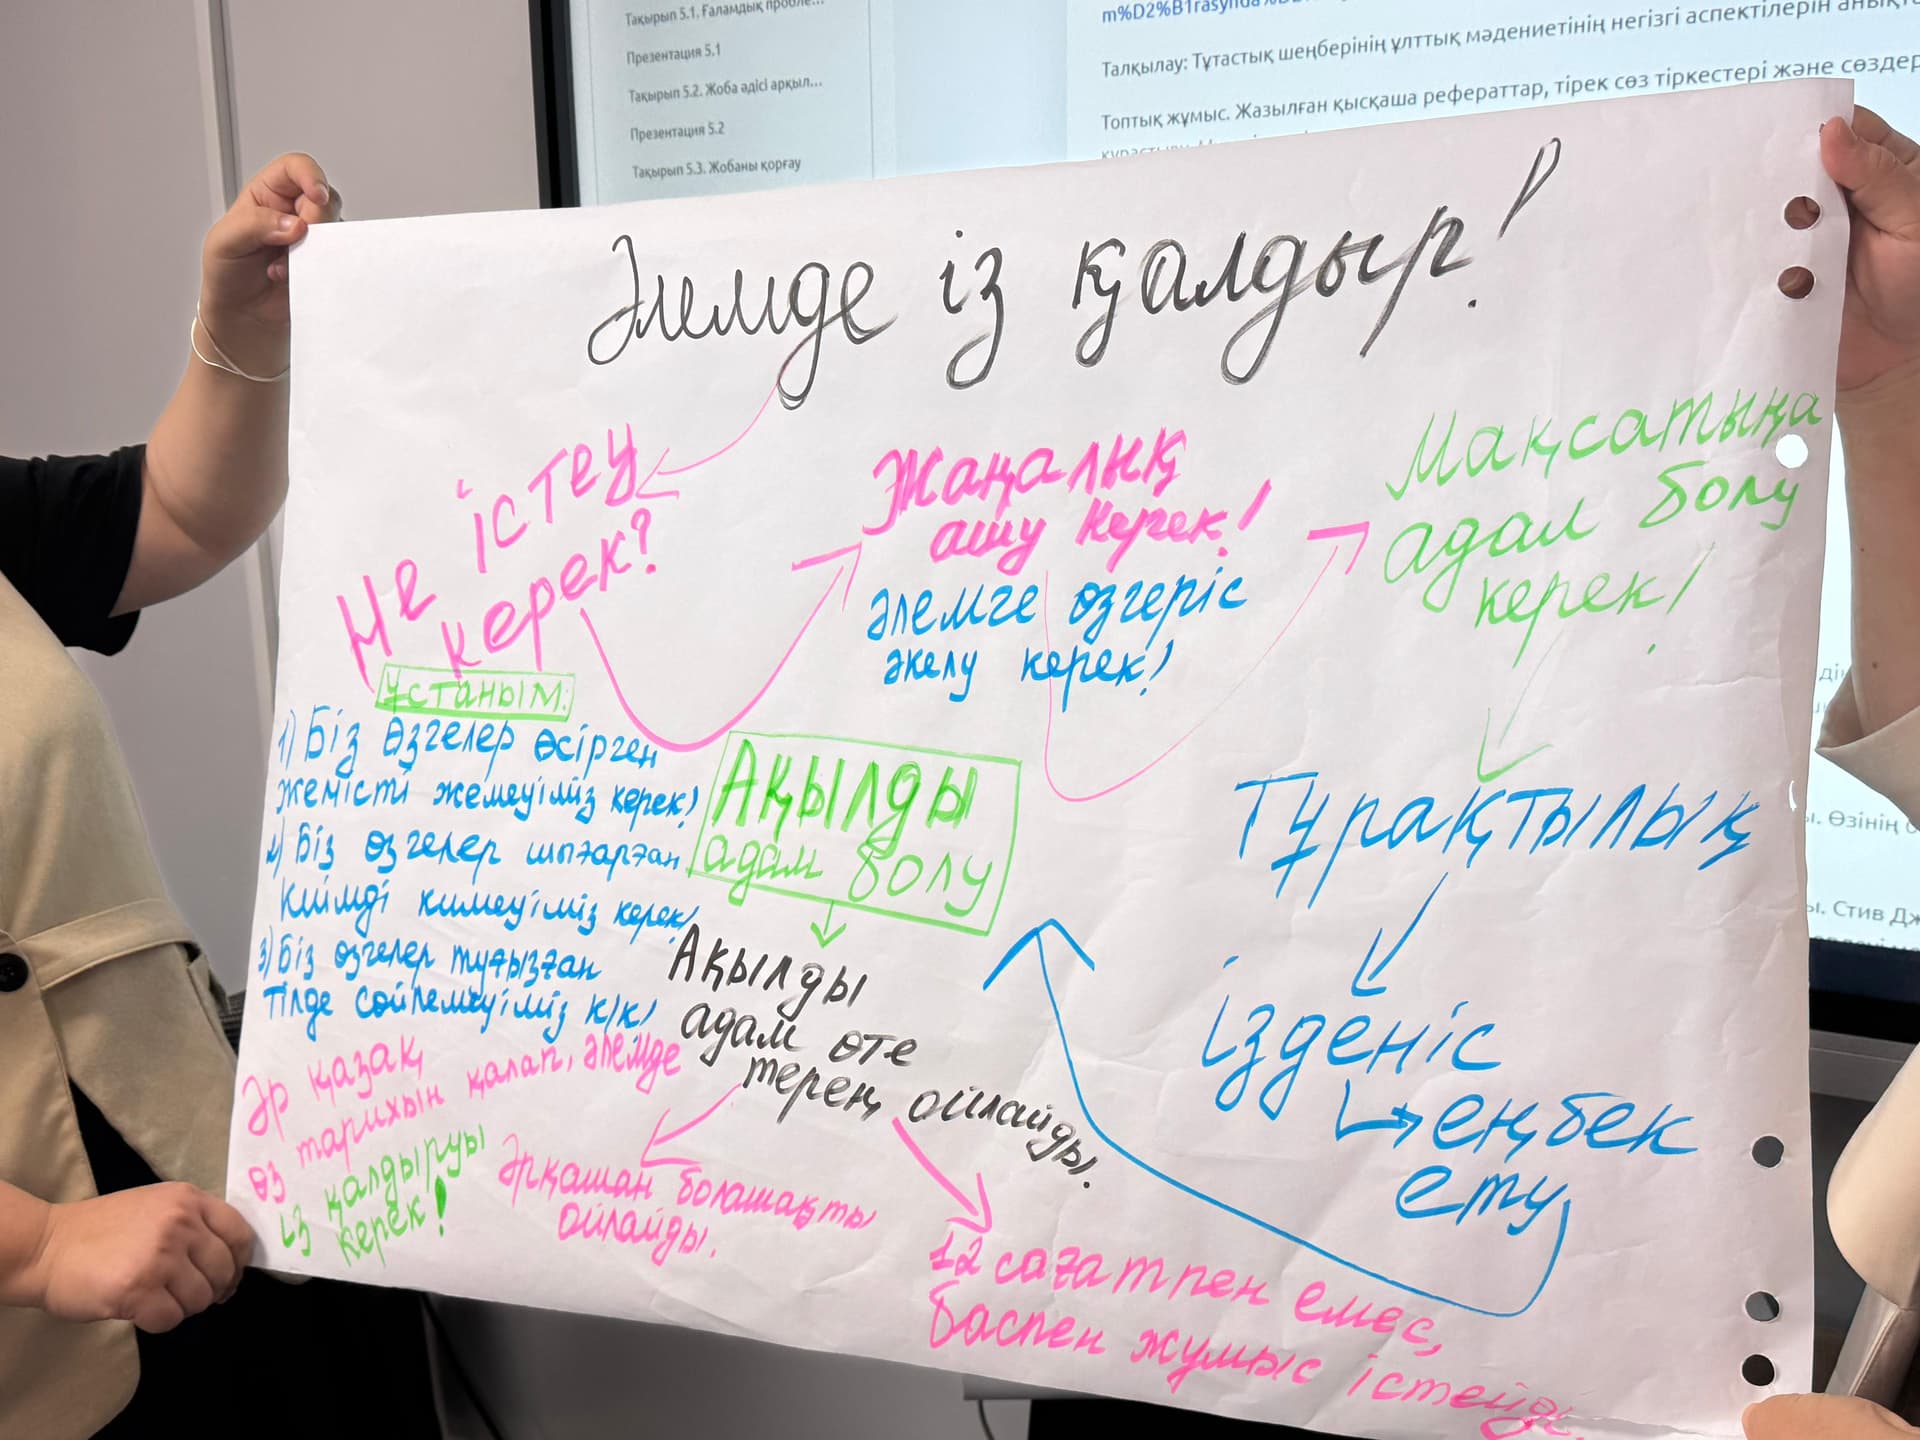 Тақырып 5.1. Ғаламдық пробле...
Презентация 5.1
Тақырып 5.2. Жоба әдісі арқыл...
Презентация 5.2
Тақырып 5.3. Жобаны қорғау
Талқылау: Тұтастық шеңберінің ұлттық мәдениетінің негізгі аспектілерін
Топтық жұмыс. Жазылған қысқаша рефераттар, тірек сөз тіркестері және сөздер
Өзінің
Стив Дж
Әлемде із қалдыр!
Не істеу
керек?
Жаңалық
ашу керек!
әлемге өзгеріс
әкелу керек!
Мақсатыңа
адал болу
керек!
Тұрақтылық
ізденіс
еңбек
ету
Ұстаным:
1) Біз өзгелер өсірген
жемісті жемеуіміз керек!
2) Біз өзгелер шығарған
киімді кимеуіміз керек!
3) Біз өзгелер туғызған
тілде сөйлемеуіміз к/к!
Әр қазақ
өз тарихын қалап, әлемде
із қалдыруы
керек!
Ақылды
адам болу
Ақылды
адам өте
терең ойлайды.
Әрқашан болашақты
ойлайды.
12 сағатпен емес,
баспен жұмыс істейді.